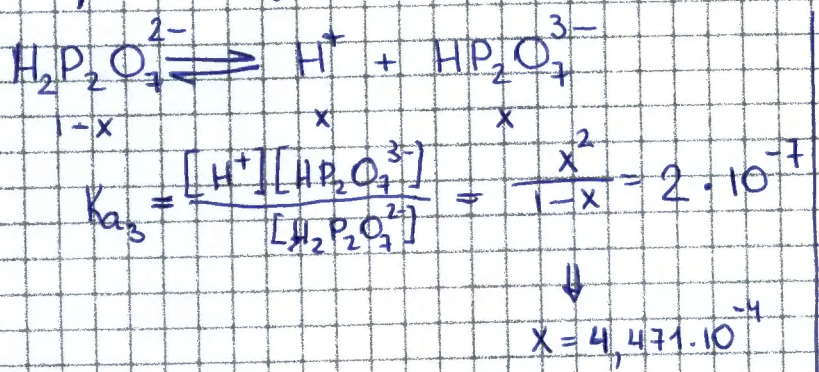 H₂P₂O₇²⁻ ⇌ H⁺ + HP₂O₇³⁻
1-x x x
Ka₃ = [H⁺][HP₂O₇³⁻] / [H₂P₂O₇²⁻] = x² / 1-x = 2·10⁻⁷
⇓
x = 4,471·10⁻⁴